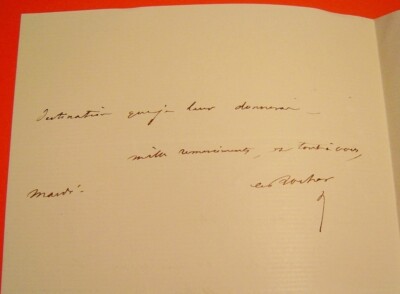 destination que je leur donnerai _
mille remerciements, et tout à vous,
Mardi.
Rocher